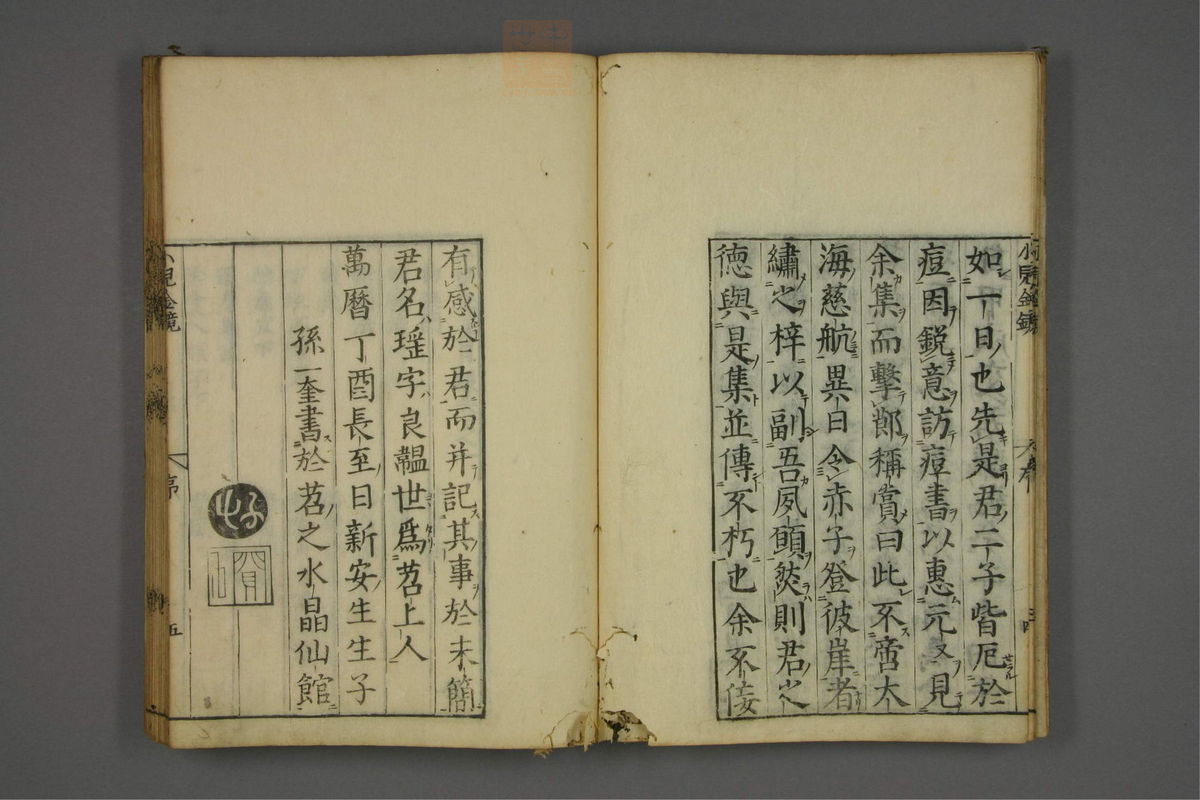 如一日也先是君二子皆厄於
痘因鋭意訪痘書以惠元又見
余集而擊節稱賞曰此不啻大
海慈航異日令赤子登彼崖者
繡之梓以副吾夙願然則君之
德與是集並傳不朽也余不佞
有感於君而并記其事於末簡
君名瑶字良韞世爲苕上人
萬曆丁酉長至日新安生生子
孫一奎書於苕之水晶仙館
小兒金鏡
序
五